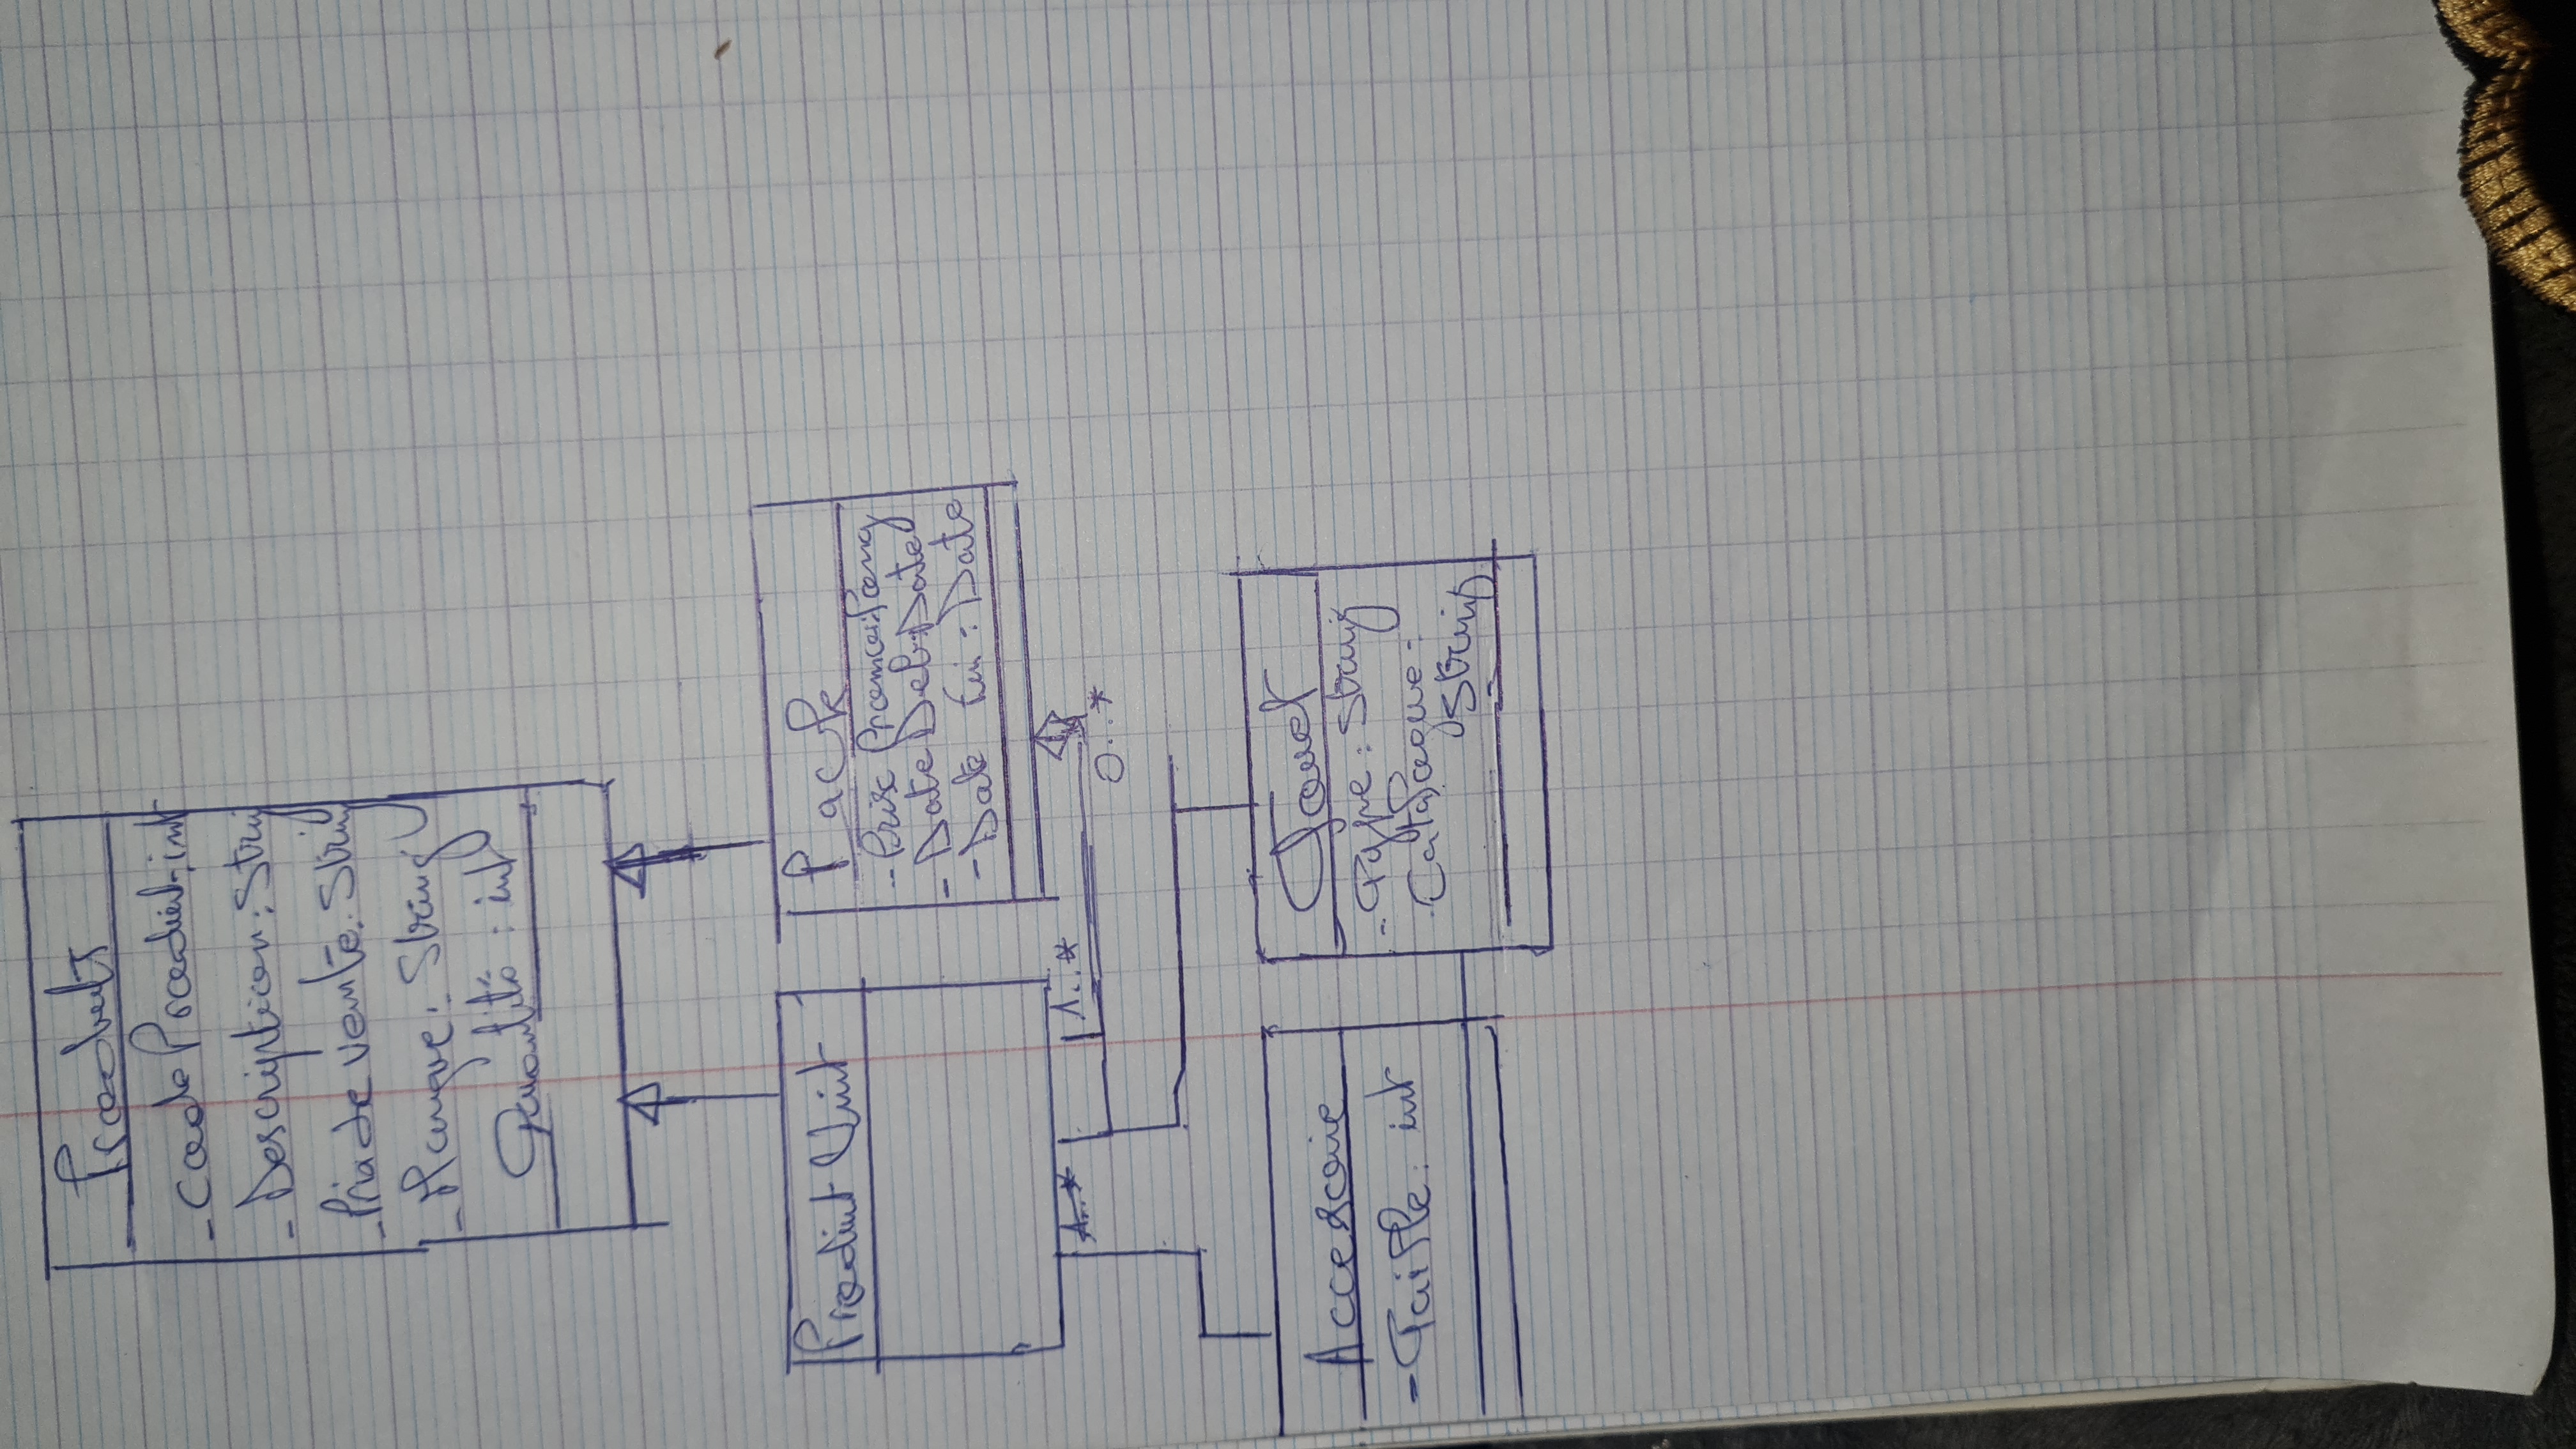 Produits
- Code Produit: int
- Description: Stri
- Prix de vente: String
- Marque: String
Quantité: int
Produit Unit
Pack
- Prix Promo: long
- Date Deb: Date
- Date fin: Date
1..*
1..*
0..*
Accessoire
- Taille: int
Jouet
- Type: String
- Catalogue:
String